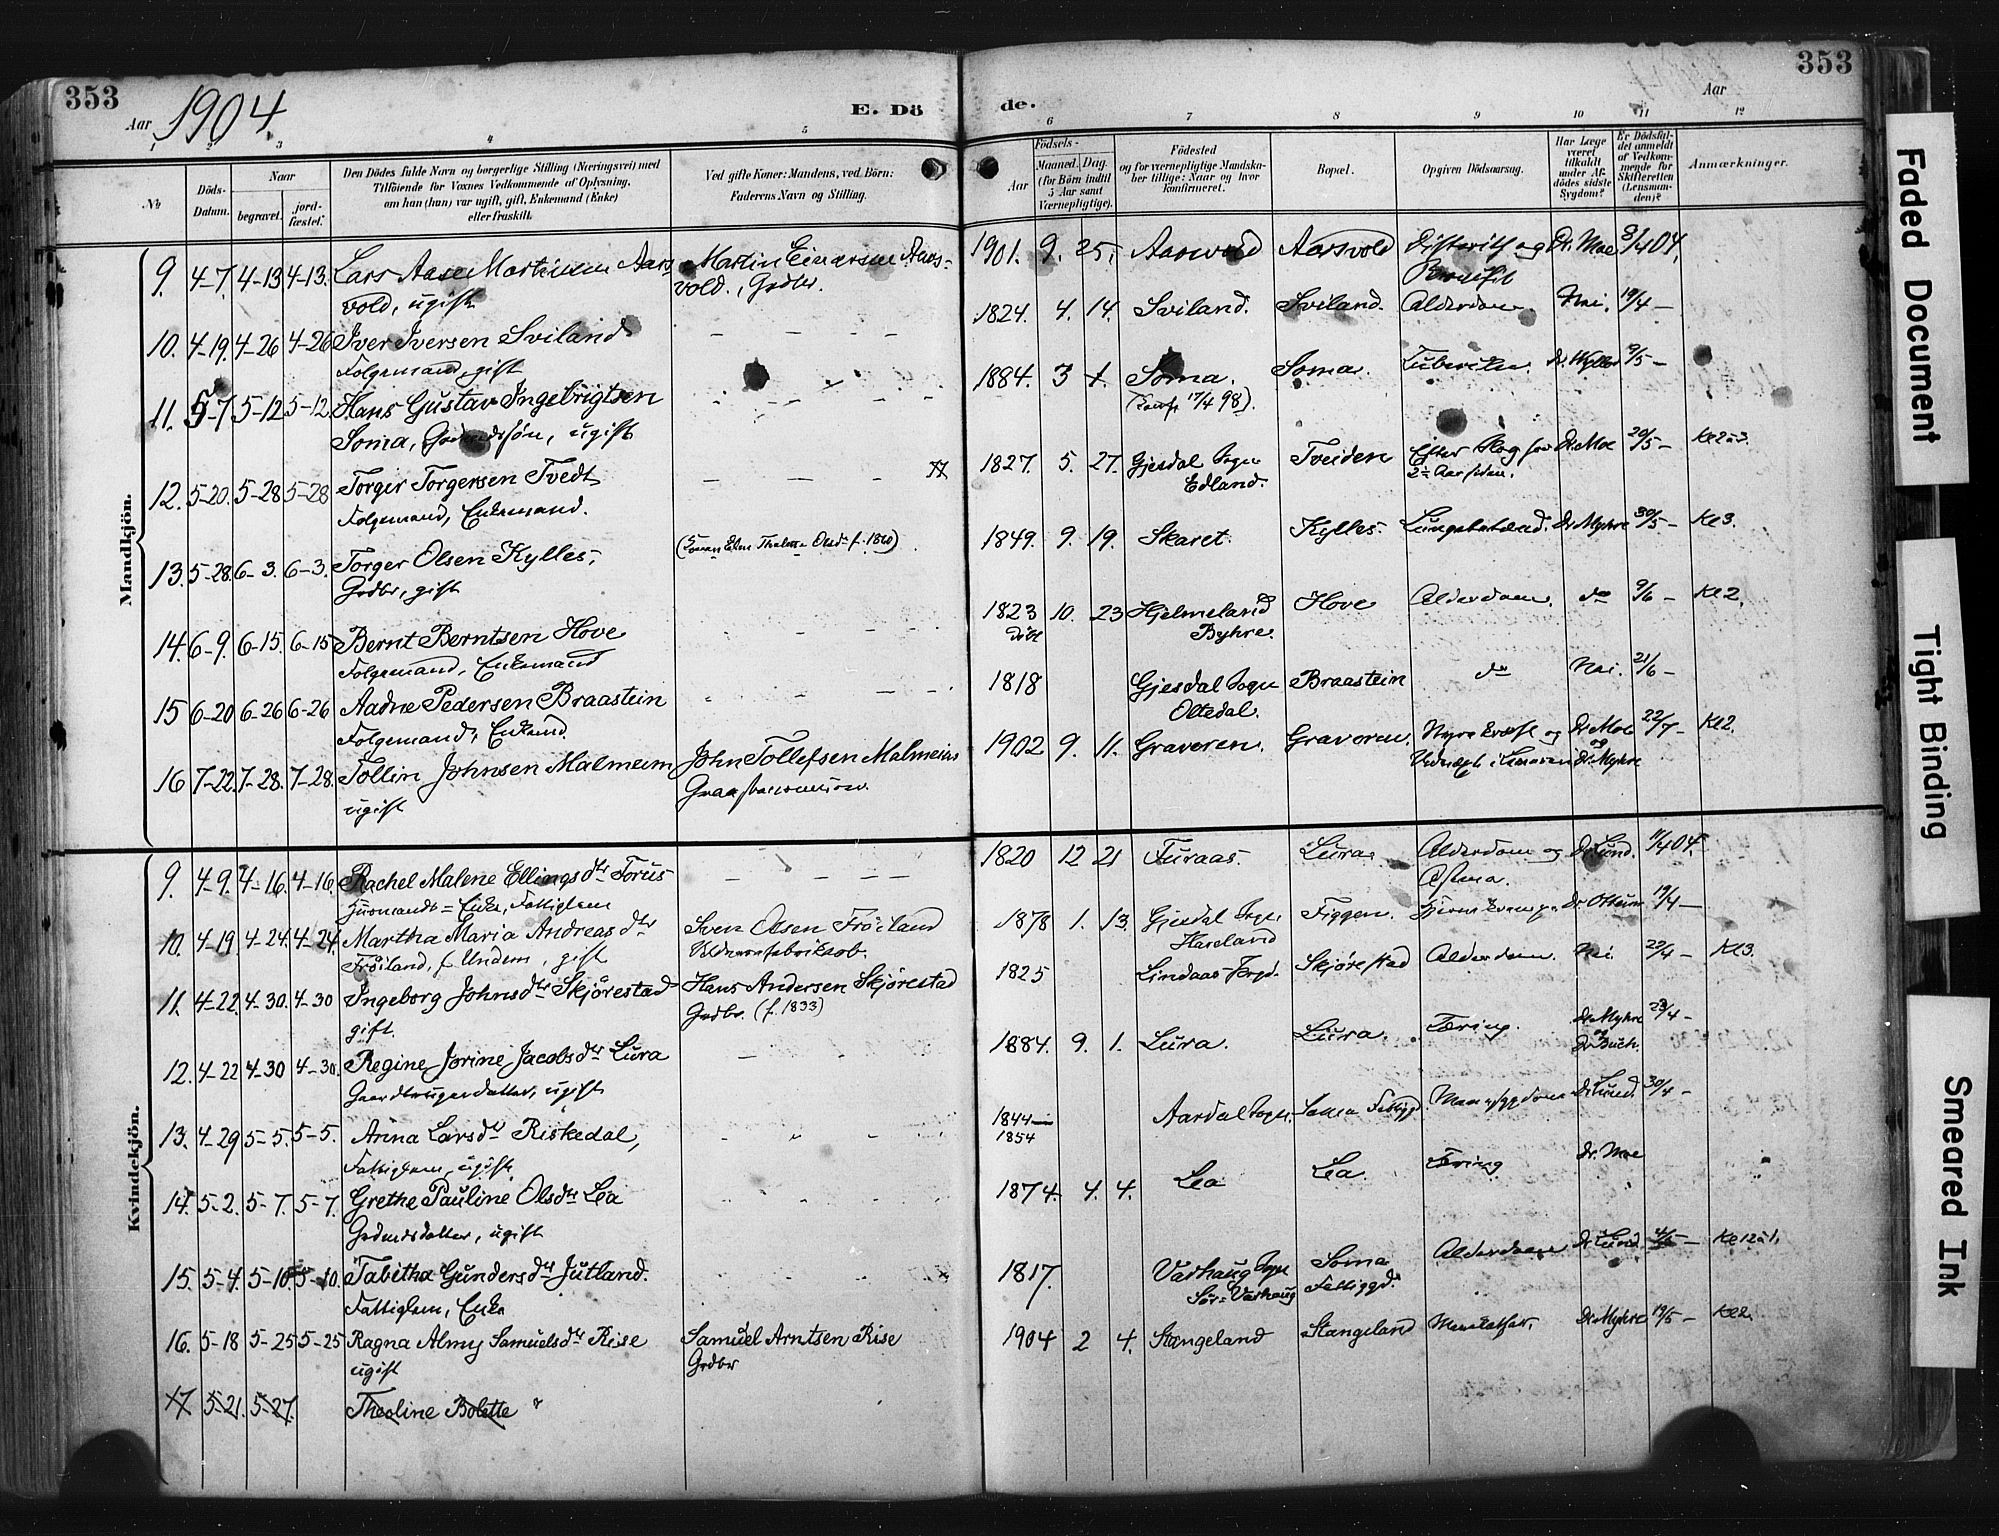 353
Aar 1904
E. Dö
1 2 3 4 5
No
Döds-
Datum.
Naar
begravet.
jord-
fæstet.
Den Dödes fulde Navn og borgerlige Stilling (Næringsvei) med
Tilföiende for Voxnes Vedkommende af Oplysning,
om han (hun) var ugift, gift, Enkemand (Enke)
eller fraskilt.
Ved gifte Koner: Mandens, ved. Börn:
Faderens Navn og Stilling.
Mandkjön.
9. 4-7. 4-13 4-13. Lars Aase Martinsen Aars Martin Einarsen Aars-
vold, ugift vold., Grdbr.
10. 4-19. 4-26 4-26 Iver Iversen Sviland
Folgemand, gift
11. 5-7 5-12 5-12 Hans Gustav Ingebrigtsen
Soma, ugift
12. 5-20. 5-28 5-28 Torger Torgersen Tvedt
Folgemand, Enkemand.
13. 5-28. 6-3. 6-3. Torger Olsen Kylles,
Grdbr, gift
14. 6-9. 6-15. 6-15 Bernt Berntsen Hove
Folgemand, Enkemand
15 6-20 6-26 6-26 Aadne Pedersen Braastein
Folgemand, Enkemd.
16 7-22. 7-28. 7-28. Tollin Johnsen Malmeim John Tollefsen Malmeim
ugift
Kvindekjön.
9. 4-9. 4-16. 4-16. Rachel Malene Ellingsdtr Forus
Husmands = Enke, Fattiglem
10. 4-19. 4-24. 4-24. Martha Maria Andreasdtr Sven Olsen Fröiland
Fröiland, gift
11. 4-22. 4-30. 4-30 Ingeborg Johnsdtr Skjörestad Hans Andersen Skjörestad
gift. Grdbr. (f. 1833)
12. 4-22 4-30 4-30. Regine Jorine Jacobsdtr Lura
ugift
13. 4-29 5-5. 5-5. Anna Larsdtr Riskedal,
Fattiglem, ugift
14. 5-2. 5-7. 5-7. Grethe Pauline Olsdtr Lea
ugift
15. 5-4. 5-10 5-10. Tabitha Gundersdtr Jutland.
Fattiglem, Enke
16. 5-18 5-25 5-25 Ragna Almy Samuelsdtr Rise Samuel Arntsen Rise
ugift Grdbr
17. 5-21. 5-27. Theoline Bolette
353
de.
Aar
6 7 8 9 10 11 12
Födsels-
Aar
Maaned. Dag.
(for Börn indtil
5 Aar samt
Værnepligtige).
Födested
og for værnepligtige Mandska-
ber tillige: Naar og hvor
konfirmeret.
Bopæl.
Opgiven Dödsaarsag.
Har Læge
været
tilkaldt
under Af-
dödes sidste
Sygdom?
Er Dödsfal-
det anmeldt
af Vedkom-
mende for
Skifteretten
(Lensman-
den)?
Anmærkninger.
1901. 9. 25. Aarsvold Aarsvold og Dr. Moe 8/4 04.
1824. 4. 14. Sviland. Sviland. Alderdom. Nei. 19/4 —
1884. 3 1. Soma. Soma. 9/5 —
(Konf. 17/4 98).
1827. 5. 27. Gjesdal Sogn Tveiden Efter Slag for Dr. Moe 20/5 —
Edland. 2 Aar siden.
1849. 9. 19. Skaret. Kylles. Dr. Myhre 30/5 — Kl 3.
1823 10. 23 Hjelmeland Hove Alderdom. do 9/6 — Kl 2.
döbt
1818 Gjesdal Sogn Braastein do Nei. 21/6 —
Oltedal.
1902 9. 11. Gravoren. Gravoren. og Dr. Moe 22/7 — Kl 2.
og
Dr. Myhre
1820 12 21 Furaas. Lura Alderdom og Dr. Lund. 11/4 04.
Astma.
1878 1. 13. Gjesdal Sogn Figgen. 19/4 —
1825 Skjörestad Alderdom. Nei. 22/4 — Kl 3.
1884. 9. 1. Lura. Lura. Tæring. Dr. Myhre 23/4 —
og
Dr. Buch.
1844— Aardal Sogn. Dr. Lund. 30/4 —
1854
1874. 4. 4. Lea Lea. Tæring Dr. Moe
1817. Varhaug Sogn Soma Alderdom Dr. Lund.
Sör-Varhaug Fattiggd.
1904 2 4. Stangeland Stangeland Dr. Myhre 19/5 — Kl 2.
Faded Document
Tight Binding
Smeared Ink